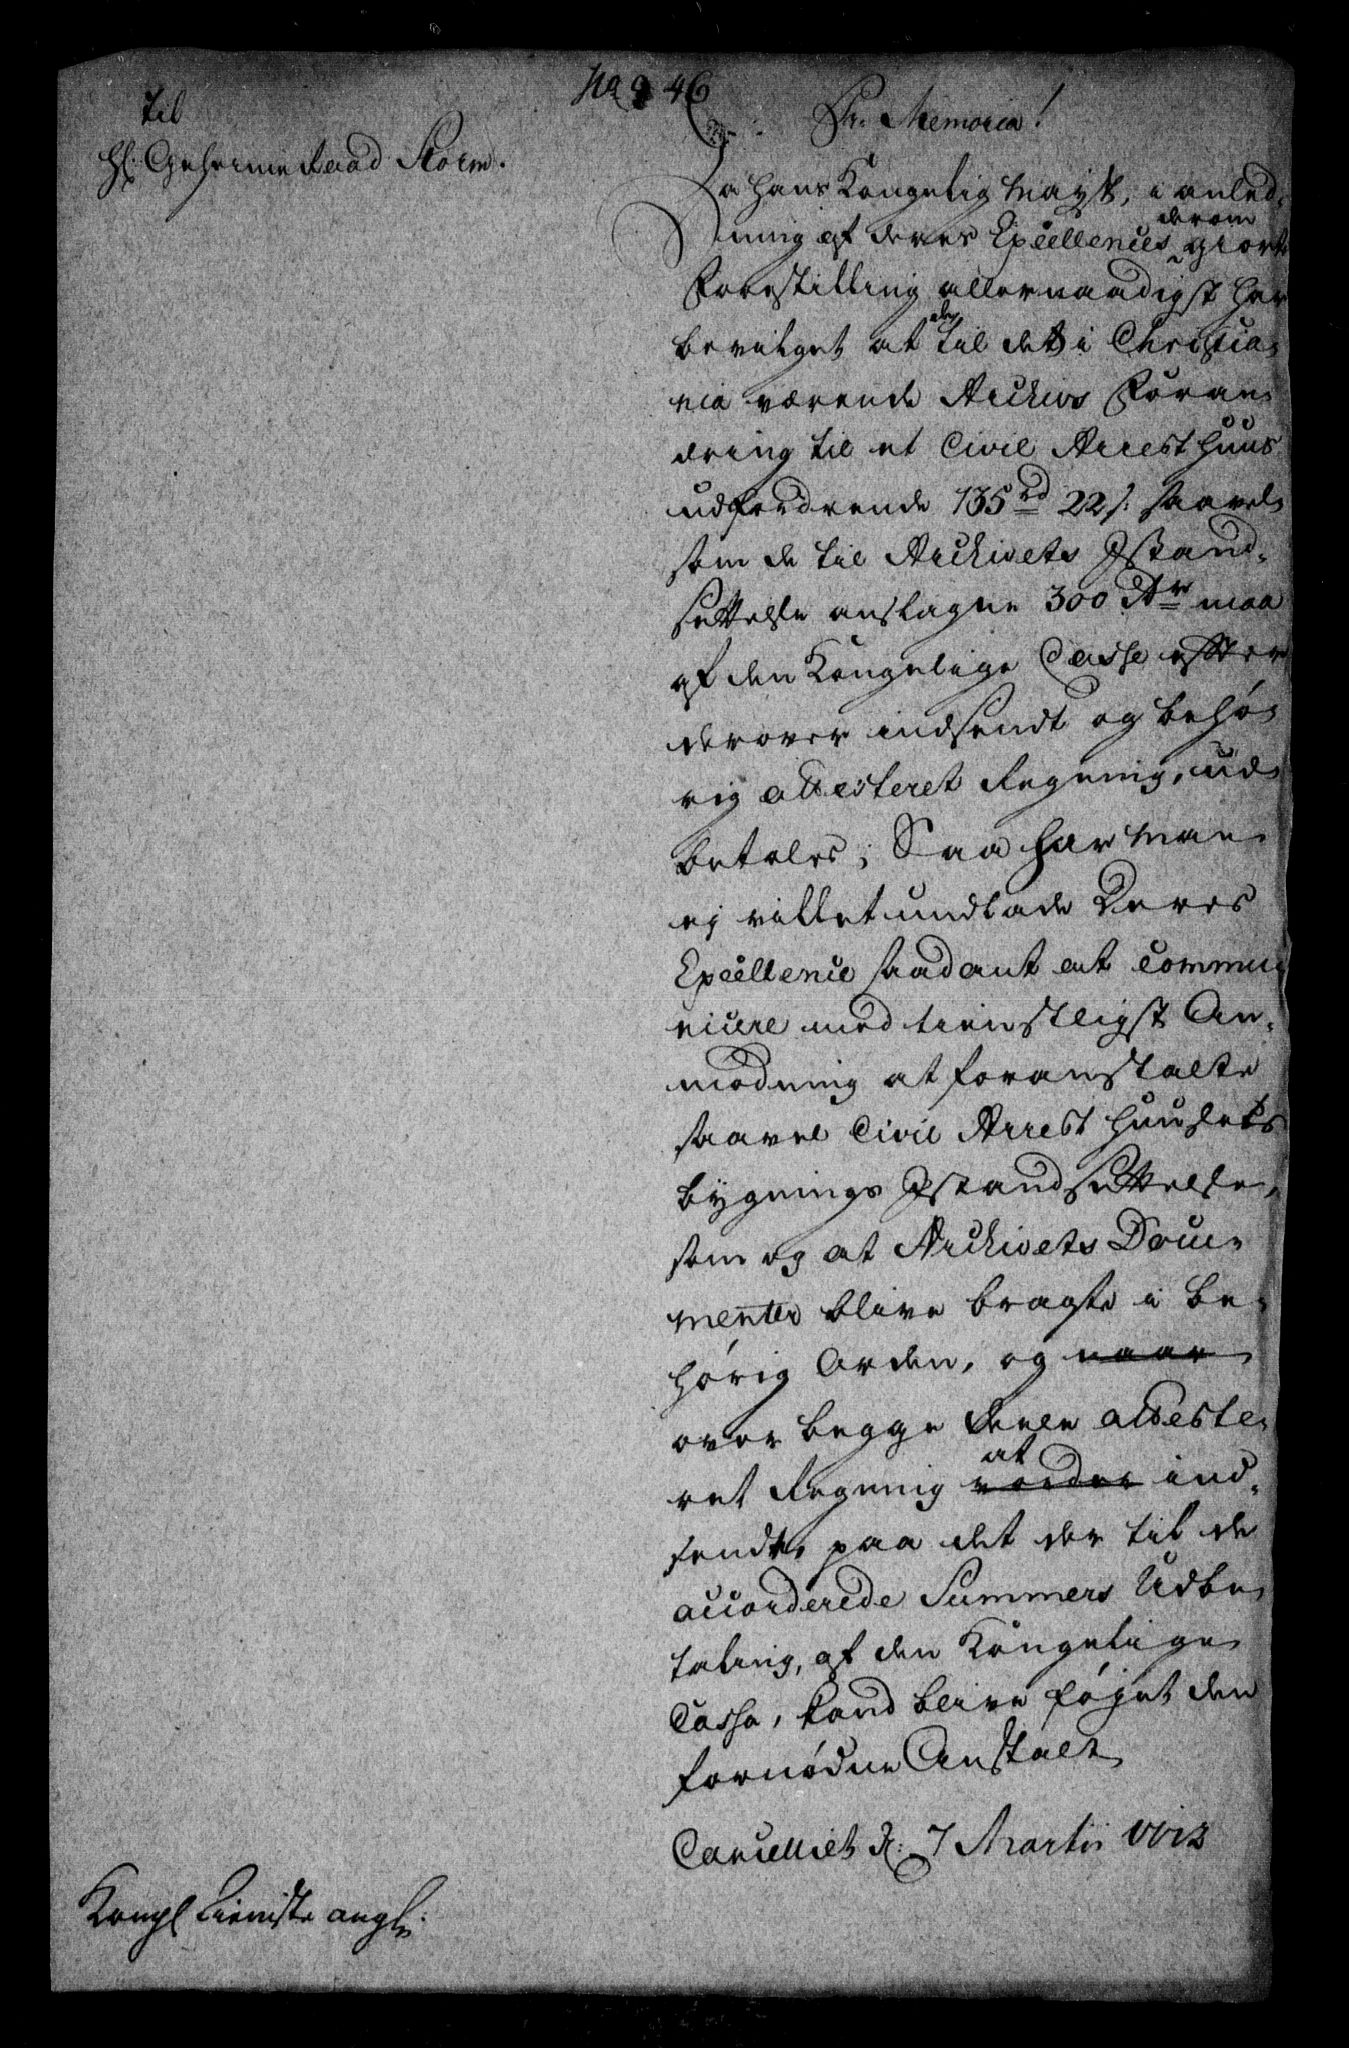 No 946
Til
Hl: Geheime Raad Storm.
Pr. Memoria!
Da Hans Kongelig Mayst, i anled-
ning af deres Excellences derom giorte
Forestilling allernaadigst har
bevilget at de til det i Christia-
nia værende Archivs Foran-
dring til et Civil Arresthuus
udfordrende 135 rd 22 s: saavel
som de til Archivets Istand-
settelse anslagne 300 rdr maa
af den Kongelige Casse efter
derover indsendt og behø-
rig attesteret Regning, ud-
betales; Saa har Man
ej villet undlade Deres
Excellence saadant at commu-
nicere med tienstligst An-
modning at foranstalte
saavel Civil Arrest Huusets
bygnings Istandsettelse,
som og at Archivets Docu-
menter blive bragte i be-
hørig Orden, og naar
over begge Deele atteste-
ret Regning vorder at ind-
sendt, paa det der til de
accorderede Summers Udbe-
taling, af den Kongelige
Cassa, kand blive føjet den
fornødne Anstalt
Cancelliet d: 7 Martii
Kongl Tieniste angl: